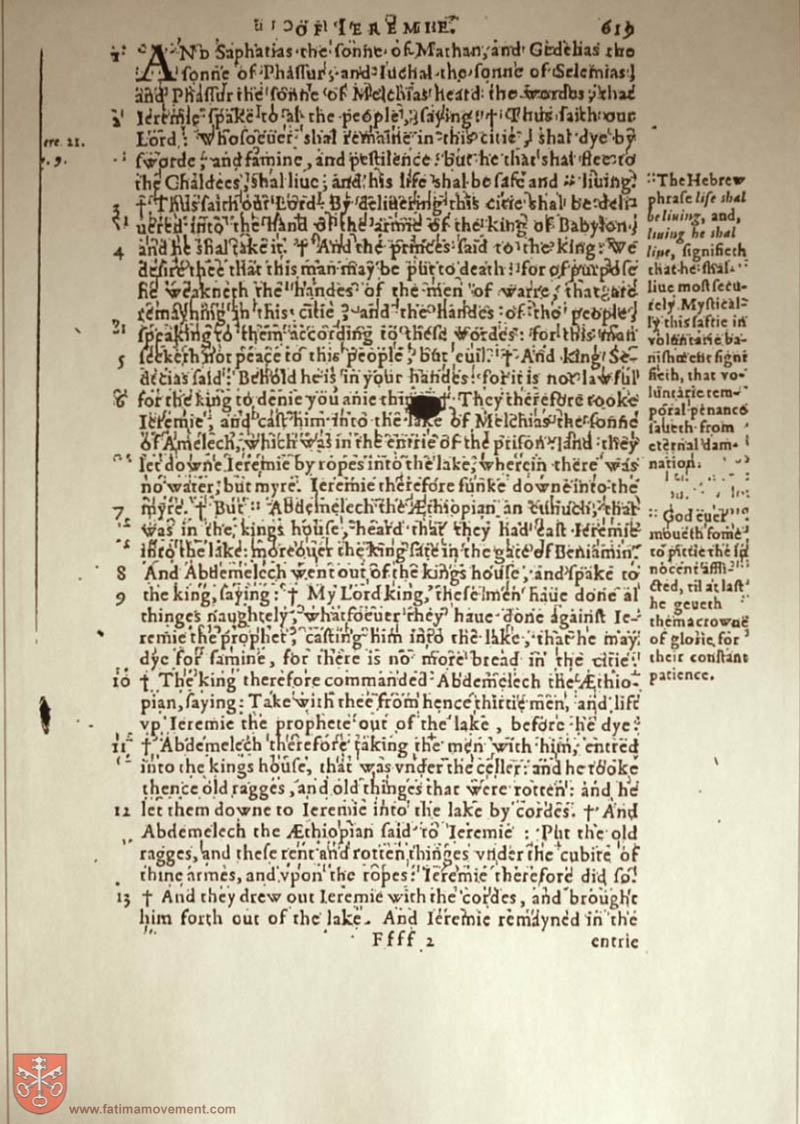 OF IEREMIE. 613
1 AND Saphatias the sonne of Mathan, and Gedelias the
sonne of Phassur, and Iuchal the sonne of Selemias,
and Phassur the sonne of Melchias heard the wordes, that
2 Ieremie spake to al the people, saying: † Thus saith our
Lord: Whosoeuer shal remaine in this citie, shal dye by
sworde, and famine, and pestilence: but he that shal flee to
the Chaldees, shal liue; and his life shal be safe and :: liuing.
3 † Thus saith our Lord: By deliuering this citie shal be deli-
uered into the hand of the armie of the king of Babylon,
4 and he shal take it. † And the princes said to the king: We
desire thee that this man may be put to death: for of purpose
he weakneth the handes of the men of warre, that are
remayning in this citie, and the handes of the people,
speaking to them according to these wordes: for this man
5 seeketh not peace to this people, but euil. † And king Se-
decias said: Behold he is in your handes: for it is not lawful
6 for the king to denie you anie thing. † They therefore tooke
Ieremie, and cast him into the lake of Melchias the sonne
of Amelech, which was in the entrie of the prison, and they
let downe Ieremie by ropes into the lake, wherein there was
no water, but myre. Ieremie therefore sunke downe into the
7 myre. † But :: Abdemelech the Æthiopian an eunuch, that
was in the kings house, heard that they had cast Ieremie
into the lake: moreouer the king sate in the gate of Beniamin.
8 And Abdemelech went out of the kings house, and spake to
9 the king, saying: † My Lord king, these men haue done al
thinges naughtely, whatsoeuer they haue done against Ie-
remie the prophet, casting him into the lake, that he may
dye for famine, for there is no more bread in the citie.
10 † The king therefore commanded Abdemelech the Æthio-
pian, saying: Take with thee from hence thirtie men, and lift
vp Ieremie the prophete out of the lake, before he dye.
11 † Abdemelech therefore taking the men with him, entred
into the kings house, that was vnder the celler: and he tooke
thence old ragges, and old thinges that were rotten: and he
12 let them downe to Ieremie into the lake by cordes. † And
Abdemelech the Æthiopian said to Ieremie: Put the old
ragges, and these rent and rotten thinges vnder the cubite of
thine armes, and vpon the ropes: Ieremie therefore did so.
13 † And they drew out Ieremie with the cordes, and brought
him forth out of the lake. And Ieremie remayned in the
Ffff 2 entrie
ere. 21.
v. 9.
:: The Hebrew
phrase life shal
be liuing, and,
liuing he shal
liue, signifieth
that he shal
liue most secu-
rely. Mystical-
ly this saftie in
voluntarie ba-
nishment signi
fieth, that vo-
luntarie tem-
poral penance
saueth from
eternal dam-
nation.
:: God euer
moueth some
to pittie the in
nocent affli-
cted, til at last
he geueth
them a crowne
of glorie for
their constant
patience.
www.fatimamovement.com